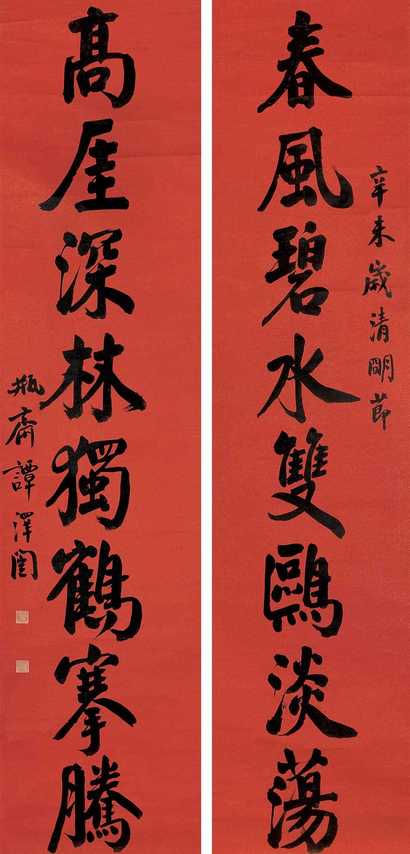 春風碧水雙鷗淡蕩
辛未歲清明節
高厓深林獨鶴搴騰
瓶齋譚澤闓